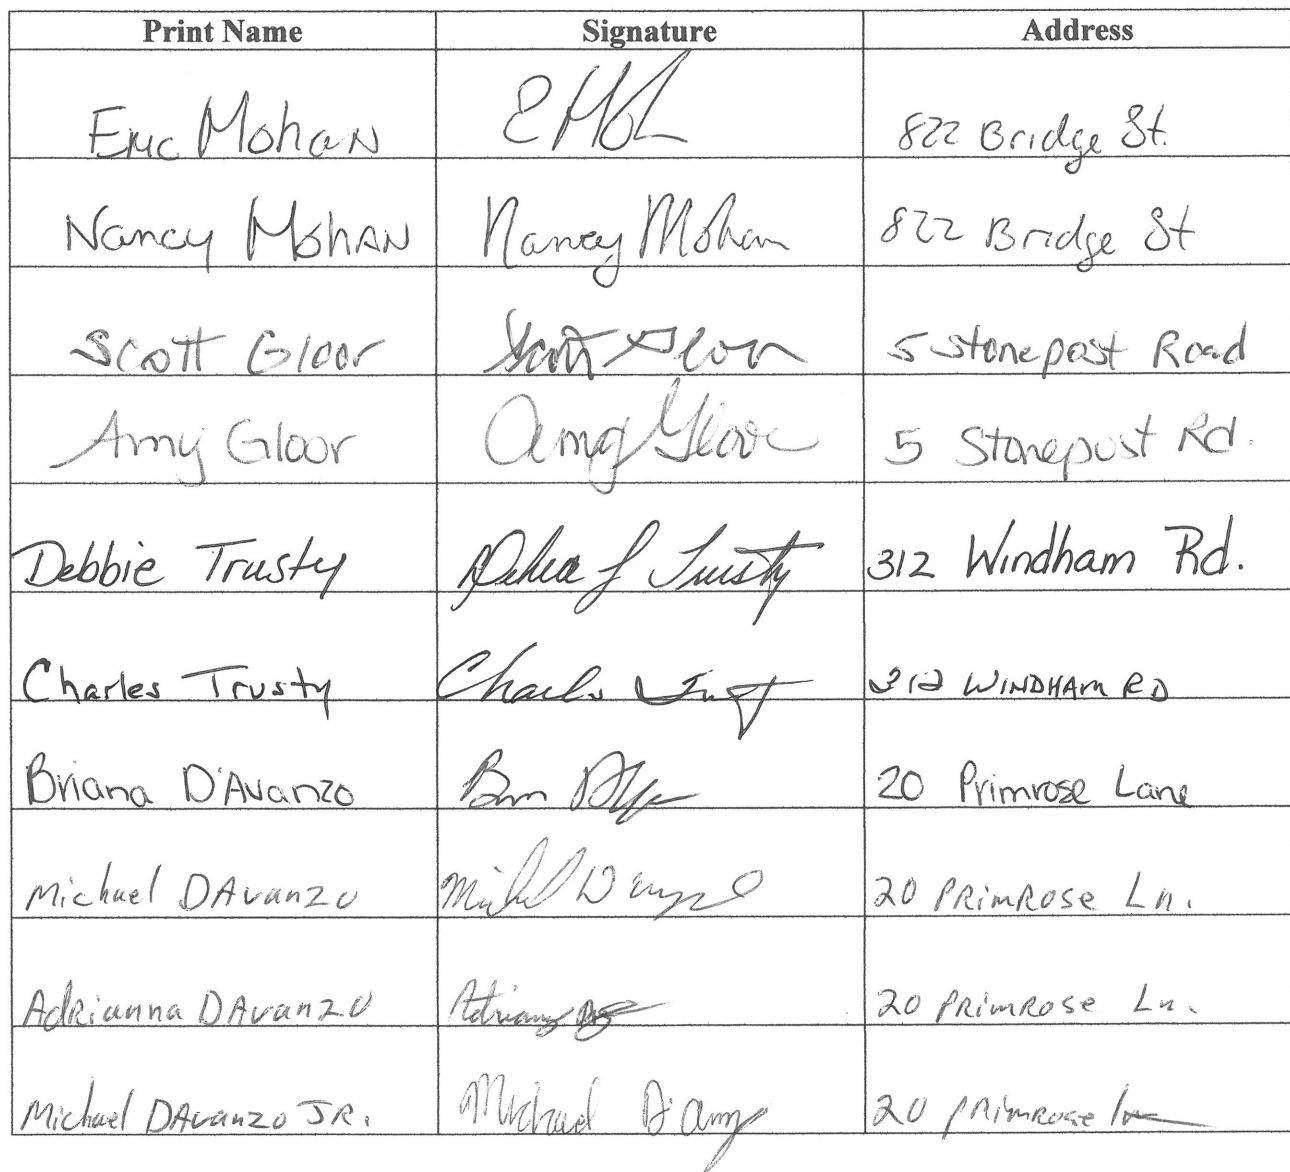 Print Name Signature Address
Eric Mohan E Moh 822 Bridge St.
Nancy Mohan Nancy Mohan 822 Bridge St
Scott Gloor Scott Gloor 5 Stonepost Road
Amy Gloor Amy Gloor 5 Stonepost Rd.
Debbie Trusty Debra J Trusty 312 Windham Rd.
Charles Trusty Charles Trusty 312 WINDHAM RD
Briana D'Avanzo 20 Primrose Lane
Michael DAvanzo 20 PRimRose Ln.
AdRianna DAvanzo 20 PRimRose Ln.
Michael DAvanzo JR. Michael 20 PRimRose Ln